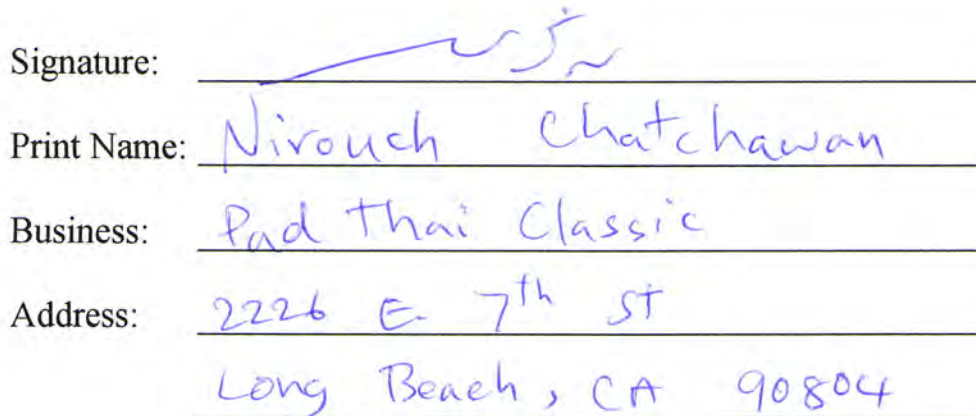 Signature:
Print Name: Nirouch Chatchawan
Business: Pad Thai Classic
Address: 2226 E. 7th ST
Long Beach, CA 90804